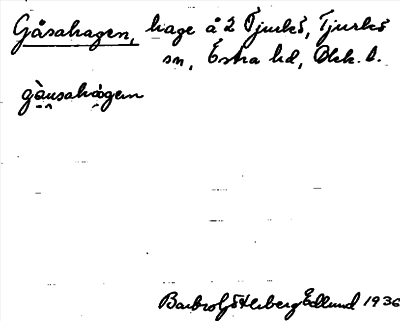 Gåsahagen, hage å 2 Tjurkö, Tjurkö
sn, Östra hd, Blek. l.
gàusahàgen
Barbro Söderberg Edlund 1936